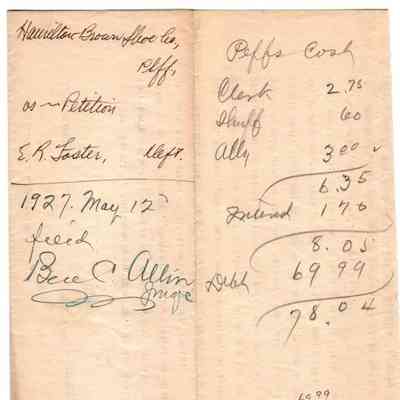 Hamilton Brown Shoe Co,
Plff,
vs — Petition
E. R. Foster, Deft.
1927. May 12
filed
Ben C Allin
Judge
Plffs Cost
Clerk 2.75
Shuff 60
Atty 3 00
6.35
Interest 1 70
8.05
Debt 69 99
78.04
69.99